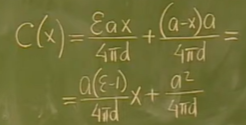 C(x) = εax/4πd + (a-x)a/4πd =
= a(ε-1)/4πd x + a²/4πd